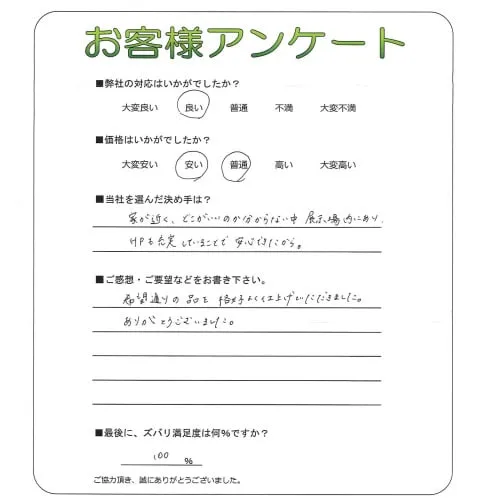 お客様アンケート
■弊社の対応はいかがでしたか？
大変良い 良い 普通 不満 大変不満
■価格はいかがでしたか？
大変安い 安い 普通 高い 大変高い
■当社を選んだ決め手は？
家が近く、どこがいいのか分からない中 展示場内にあり、
HPも充実していることで 安心できたから。
■ご感想・ご要望などをお書き下さい。
希望通りの品を 格好よく仕上げていただきました。
ありがとうございました。
■最後に、ズバリ満足度は何%ですか？
100 %
ご協力頂き、誠にありがとうございました。